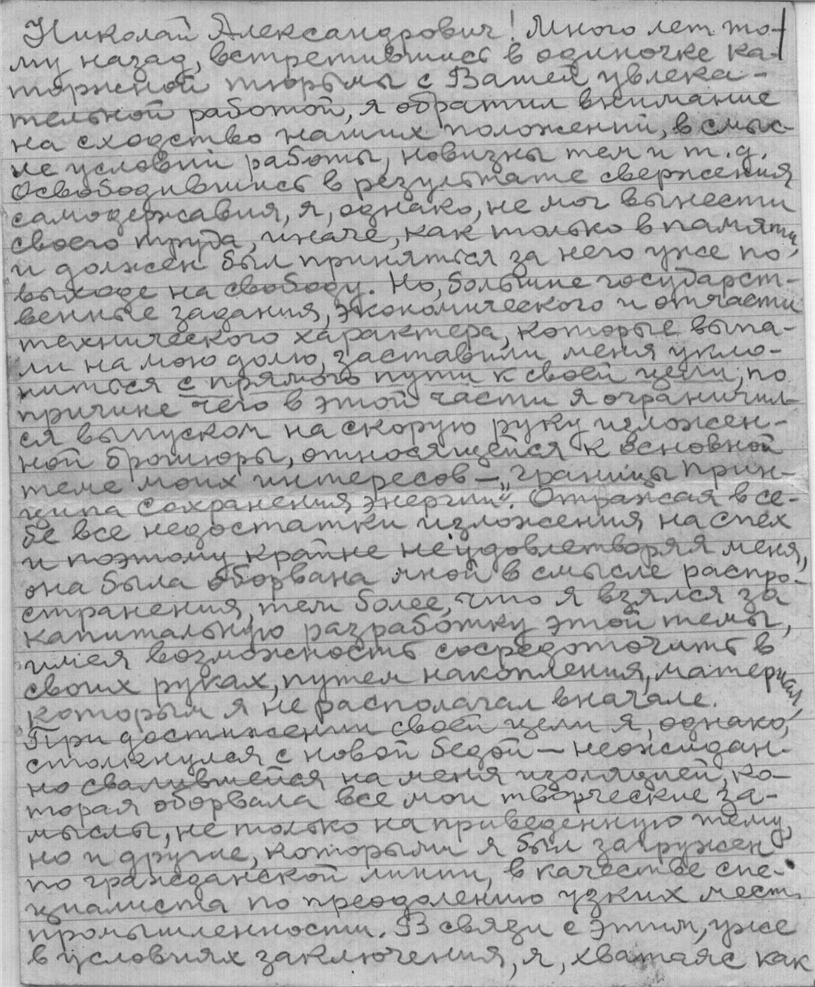 Николай Александрович! Много лет то-
му назад, встретившись в одиночке ка-
торжной тюрьмы с Вашей увлека-
тельной работой, я обратил внимание
на сходство наших положений, в смыс-
ле условий работы, новизны тем и т.д.
Освободившись в результате свержения
самодержавия, я, однако, не мог вынести
своего труда, иначе, как только в памяти,
и должен был приняться за него уже по
выходе на свободу. Но, большие государст-
венные задания, экономического и отчасти
технического характера, которые выпа-
ли на мою долю, заставили меня укло-
ниться с прямого пути к своей цели, по
причине чего в этой части я ограничил-
ся выпуском на скорую руку изложен-
ной брошюры, относящейся к основной
теме моих интересов – „границы прин-
ципа сохранения энергии". Отражая в се-
бе все недостатки изложения наспех
и поэтому крайне неудовлетворяя меня,
она была оборвана мной в смысле распро-
странения, тем более, что я взялся за
капитальную разработку этой темы,
имея возможность сосредоточить в
своих руках, путем накопления, материал,
которым я не располагал вначале.
При достижении своей цели я, однако,
столкнулся с новой бедой – неожидан-
но свалившейся на меня изоляцией, ко-
торая оборвала все мои творческие за-
мыслы, не только на приведенную тему,
но и другие, которыми я был загружен
по гражданской линии, в качестве спе-
циалиста по преодолению узких мест
промышленности. В связи с этим, уже
в условиях заключения, я, хватаяс как